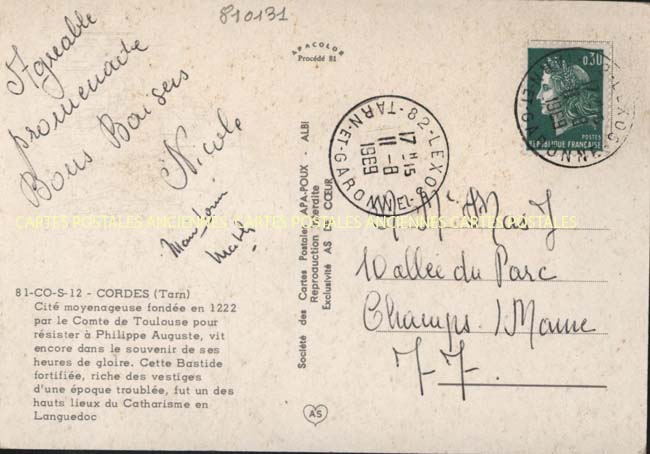 810131
Agréable
promenade
Bons Baisers
Nicole
APACOLOR
Procédé 81
0,30
POSTES
REPUBLIQUE FRANÇAISE
82-LEXOS
17 H 15
11-8
1969
TARN-ET-GARONNE
CARTES POSTALES ANCIENNES CARTES POSTALES ANCIENNES CARTES POSTALES ANCIENNES
Société des Cartes Postales APA-POUX - ALBI
Reproduction Interdite
Exclusivité AS DE CŒUR
AS
81-CO-S-12 - CORDES (Tarn)
Cité moyenageuse fondée en 1222
par le Comte de Toulouse pour
résister à Philippe Auguste, vit
encore dans le souvenir de ses
heures de gloire. Cette Bastide
fortifiée, riche des vestiges
d'une époque troublée, fut un des
hauts lieux du Catharisme en
Languedoc
10 allée du Parc
Champs s/Marne
77.